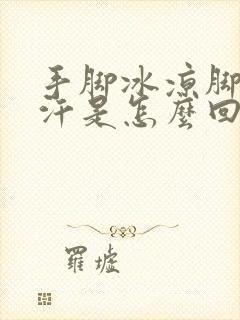 手脚冰凉脚
汗是怎麽回
羅墟